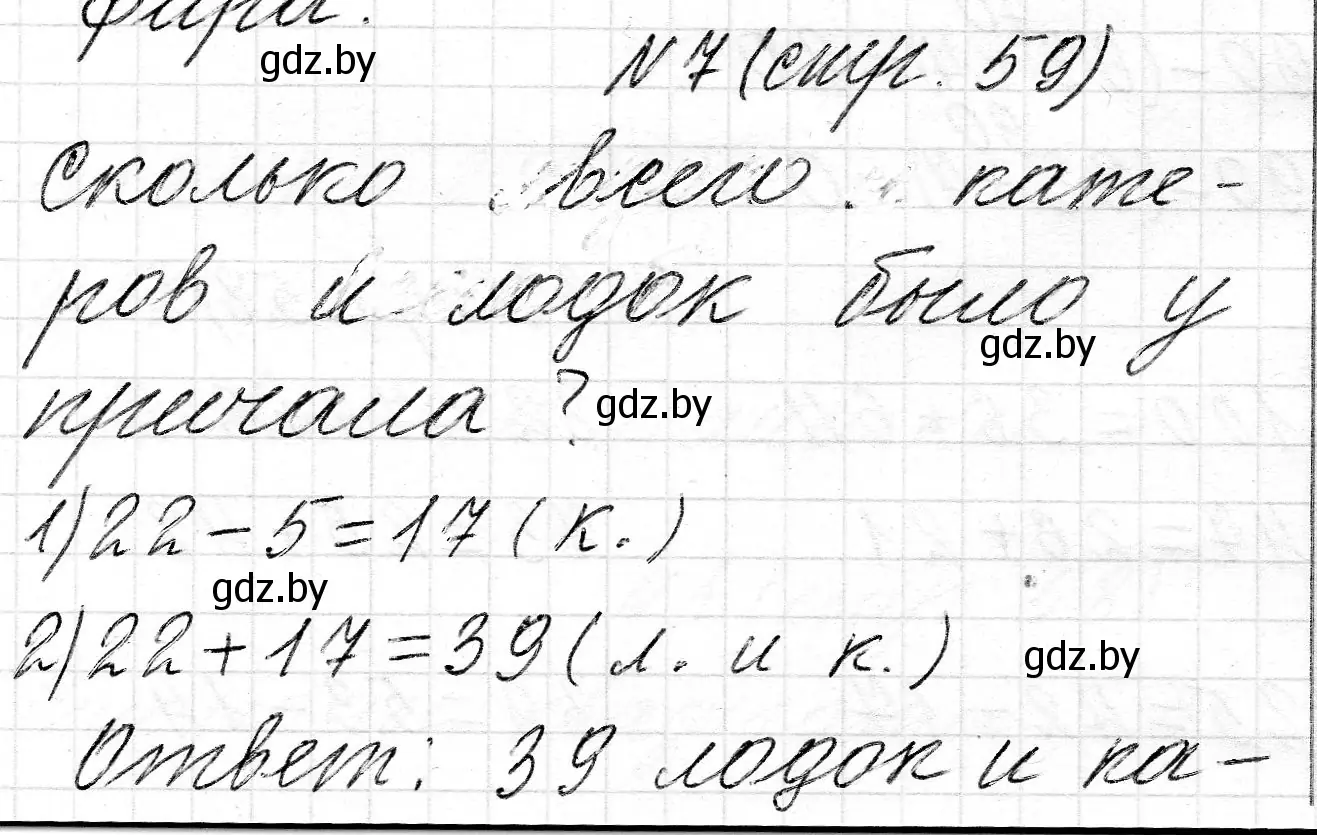 фара.
gdz.by
N7(стр. 59)
Сколько всего кате-
ров и лодок было у
gdz.by
причала? gdz.by
1)22-5=17(к.)
gdz.by
2)22+17=39(л. и к.) gdz.by
Ответ: 39 лодок и ка-